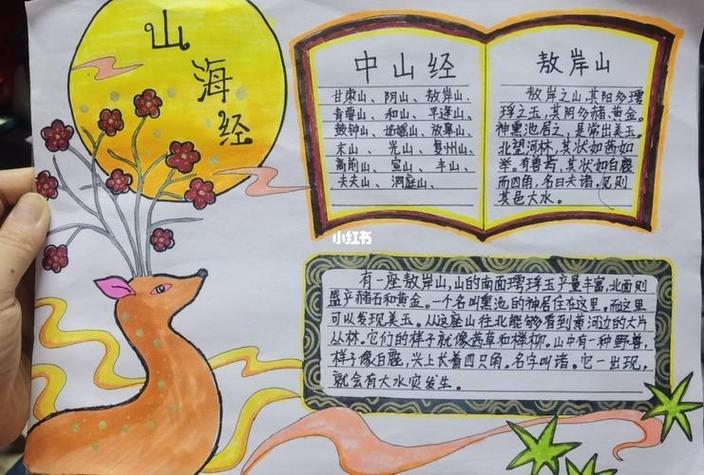 山
海
经
中山经
甘枣山、阴山、敖岸山、
青要山、和山、平逢山、
鼓钟山、姑媱山、放皋山、
末山、光山、复州山、
高前山、宣山、丰山、
夫夫山、洞庭山、
敖岸山
敖岸之山,其阳多㻬
琈之玉,其阴多赭、黄金。
神熏池居之,是常出美玉。
北望河林,其状如茜如
举。有兽焉,其状如白鹿
而四角,名曰夫诸,见则
其邑大水。
小红书
有一座敖岸山,山的南面㻬琈玉产量丰富,北面则
盛产赭石和黄金。一个名叫熏池的神居住在这里。而这里
可以发现美玉。从这座山往北能够看到黄河边的大片
丛林。它们的样子就像茜草和榉柳。山中有一种野兽,
样子像白鹿,头上长着四只角,名字叫诸。它一出现,
就会有大水灾发生。